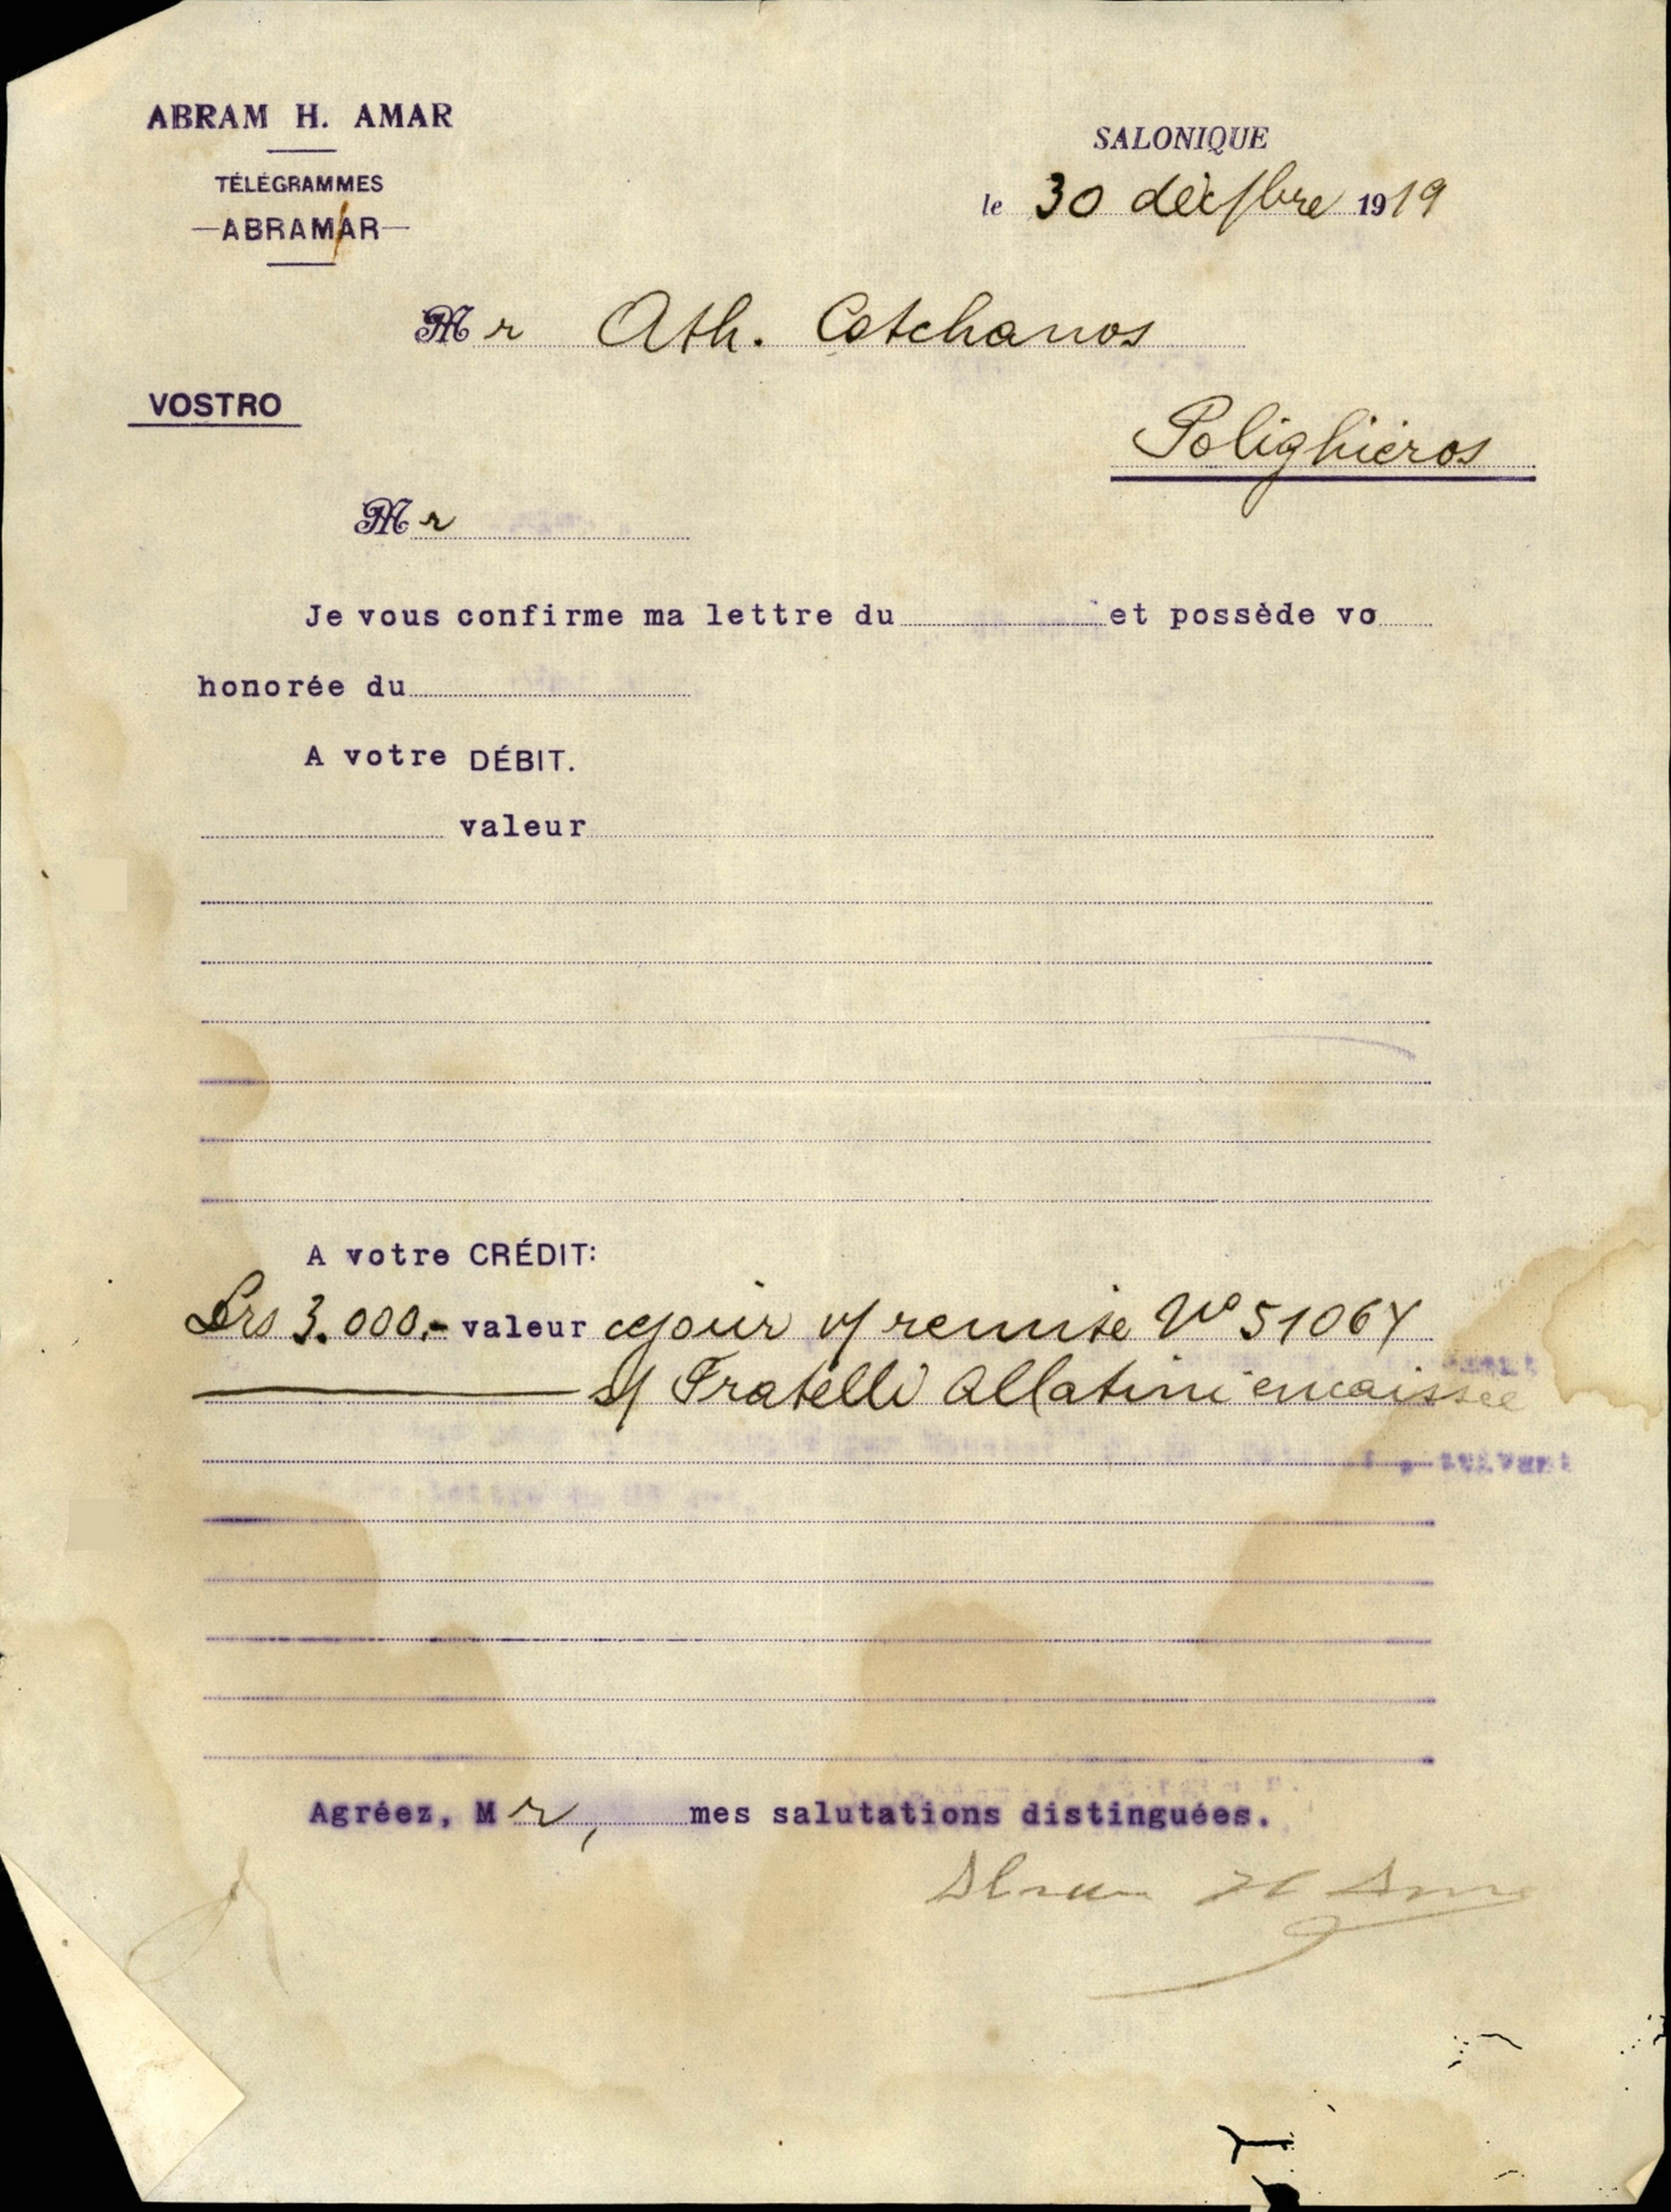 ABRAM H. AMAR
TÉLÉGRAMMES
ABRAMAR
SALONIQUE
le 30 déc/bre 1919
Mr Ath. Cotchanos
VOSTRO
Polighieros
Mr
Je vous confirme ma lettre du et possède vo
honorée du
A votre DÉBIT.
valeur
A votre CRÉDIT:
Drs 3.000.- valeur cejour v/ remise No 51064
s/ Fratelli Allatini encaissée
suivant
Agréez, M r, mes salutations distinguées.
Abram H Amar